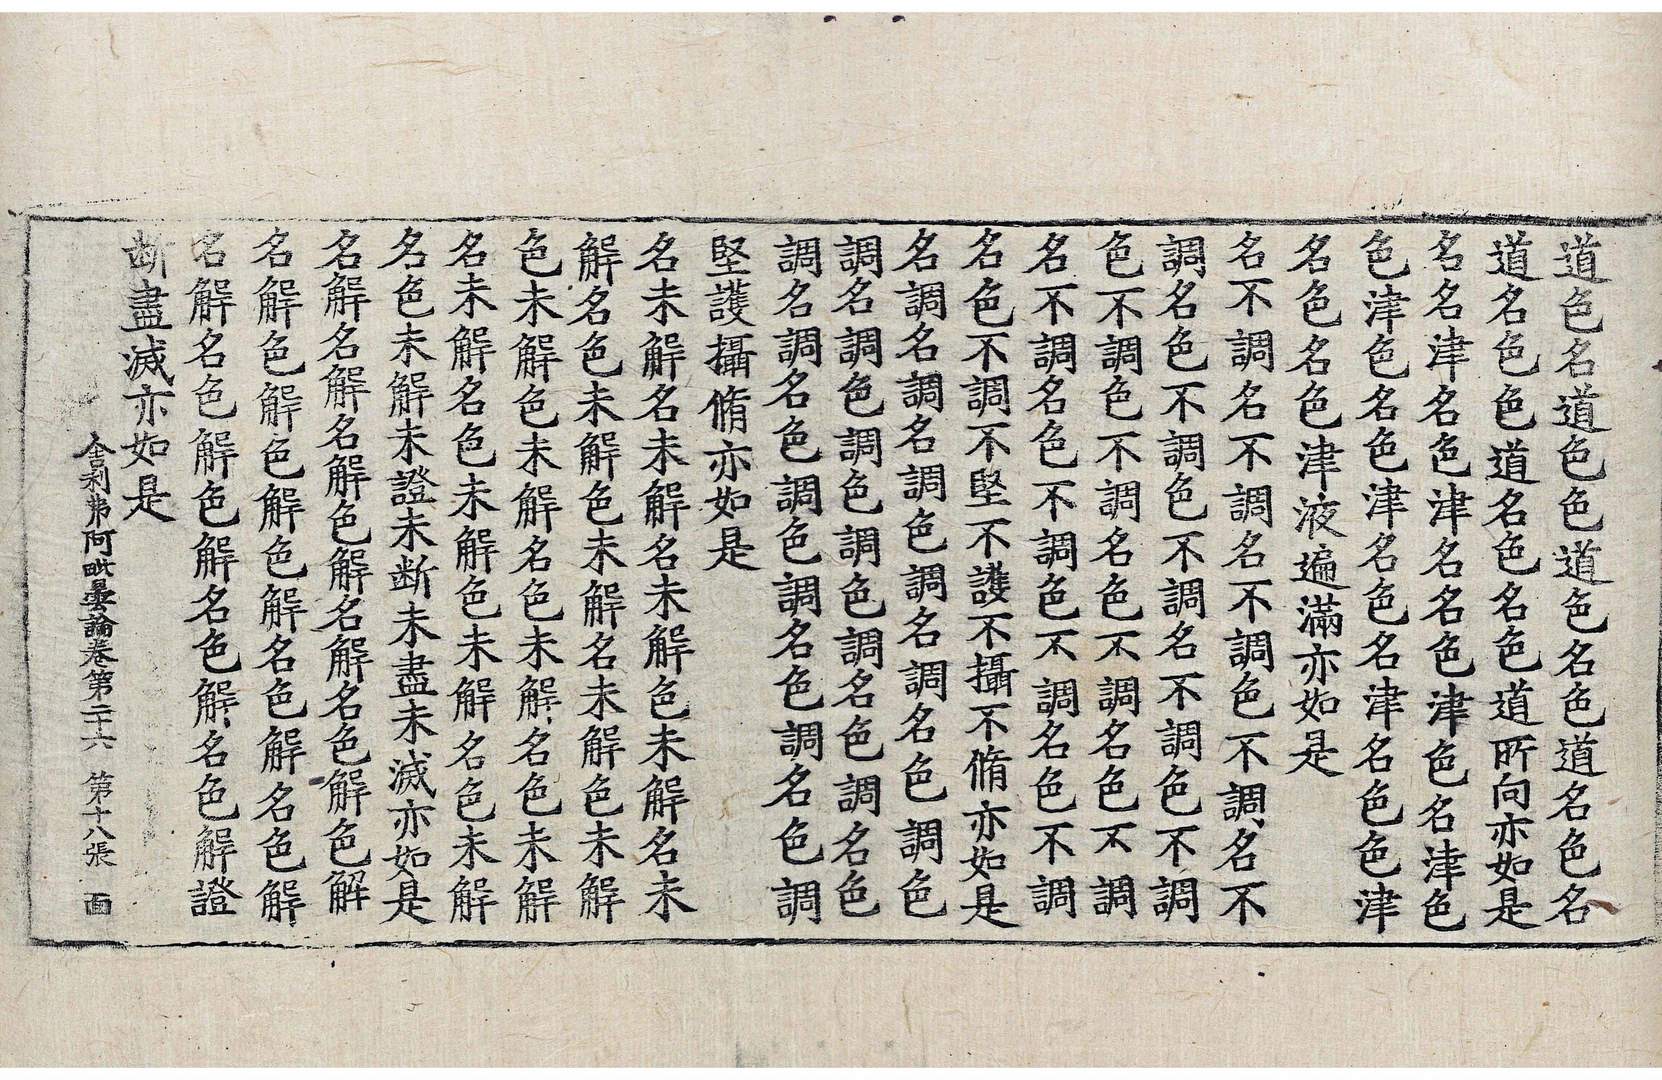 道色名道色色道色名色道名色名
道名色色道名色名色道所向亦如是
名名津名色津名名色津色名津色
色津色名色津名色名津名色色津
名色名色津液遍滿亦如是
名不調名不調名不調色不調名不
調名色不調色不調名不調色不調
色不調色不調名色不調名色不調
名不調名色不調色不調名色不調
名色不調不堅不護不攝不脩亦如是
名調名調名調色調名調名色調色
調名調色調色調色調名色調名色
調名調名色調色調名色調名色調
堅護攝脩亦如是
名未解名未解名未解色未解名未
解名色未解色未解名未解色未解
色未解色未解名色未解名色未解
名未解名色未解色未解名色未解
名色未解未證未断未盡未滅亦如是
名解名解名解色解名解名色解色解
名解色解色解色解名色解名色解
名解名色解色解名色解名色解證
断盡滅亦如是
舍利弗阿毗曇論卷第二十六 第十八張 面